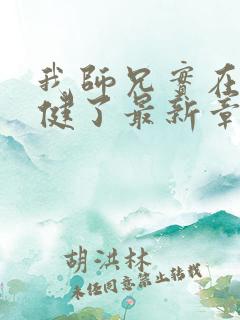 我师兄实在
健了最新章
胡洪林
未经同意禁止转载